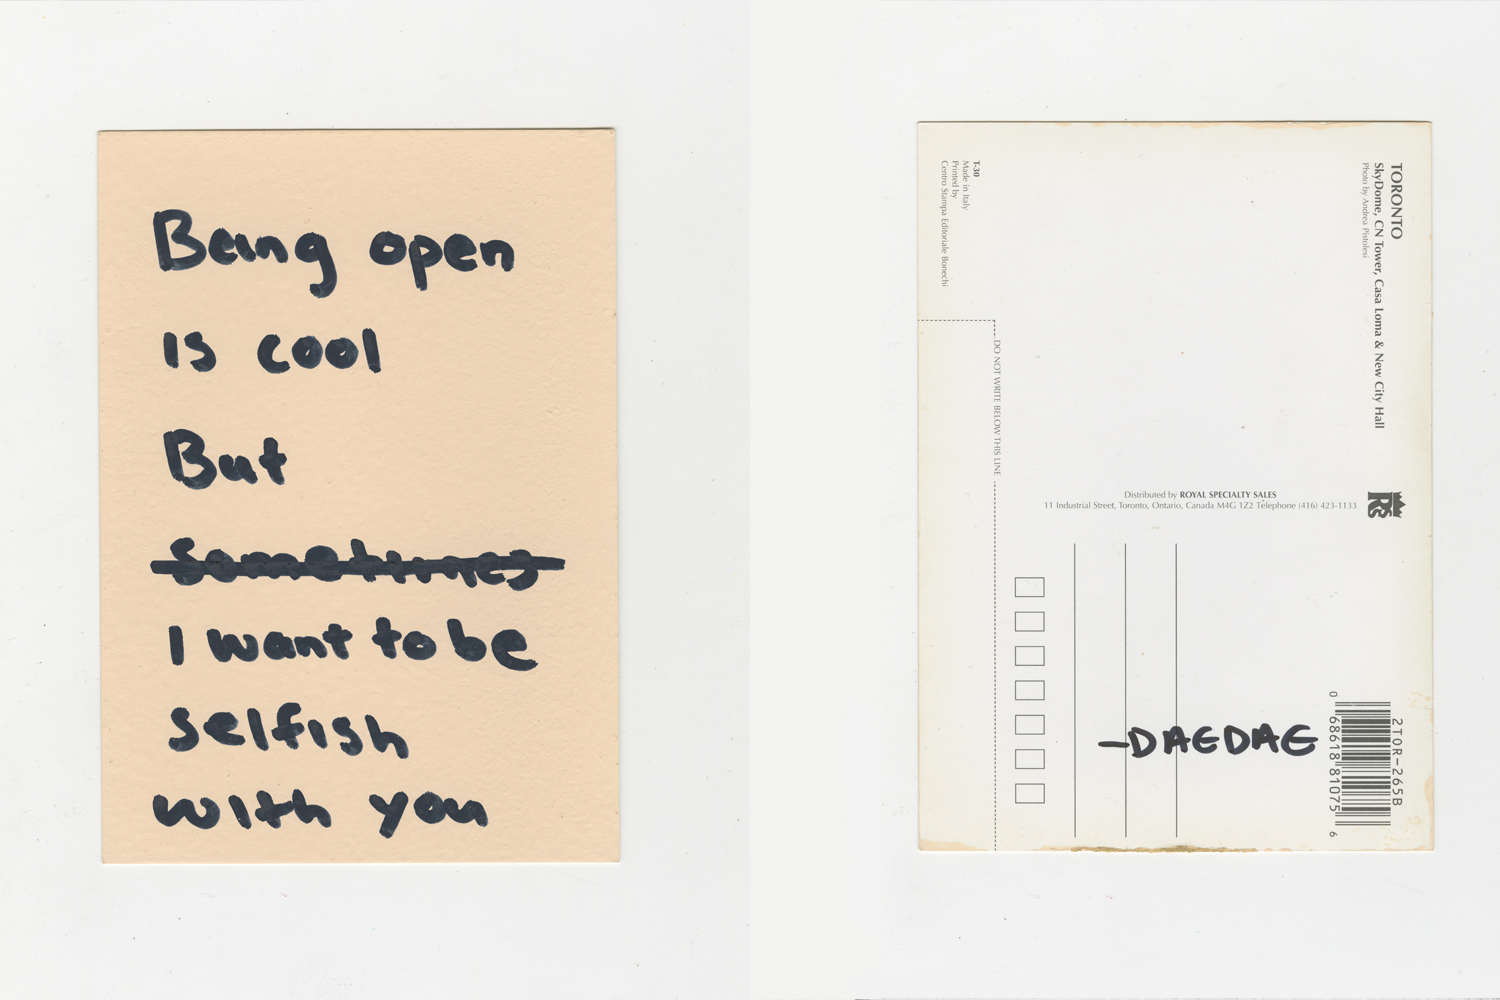 Being open
is cool
But
Sometimes
I want to be
selfish
with you
TORONTO
SkyDome, CN Tower, Casa Loma & New City Hall
Photo by Andrea Pistolesi
T-30
Made in Italy
Printed by
Centro Stampa Editoriale Bonechi
DO NOT WRITE BELOW THIS LINE
Distributed by ROYAL SPECIALTY SALES
11 Industrial Street, Toronto, Ontario, Canada M4G 1Z2 Telephone (416) 423-1133
RSS
-DAEDAE
2T0R-265B
0 68618 81075 6